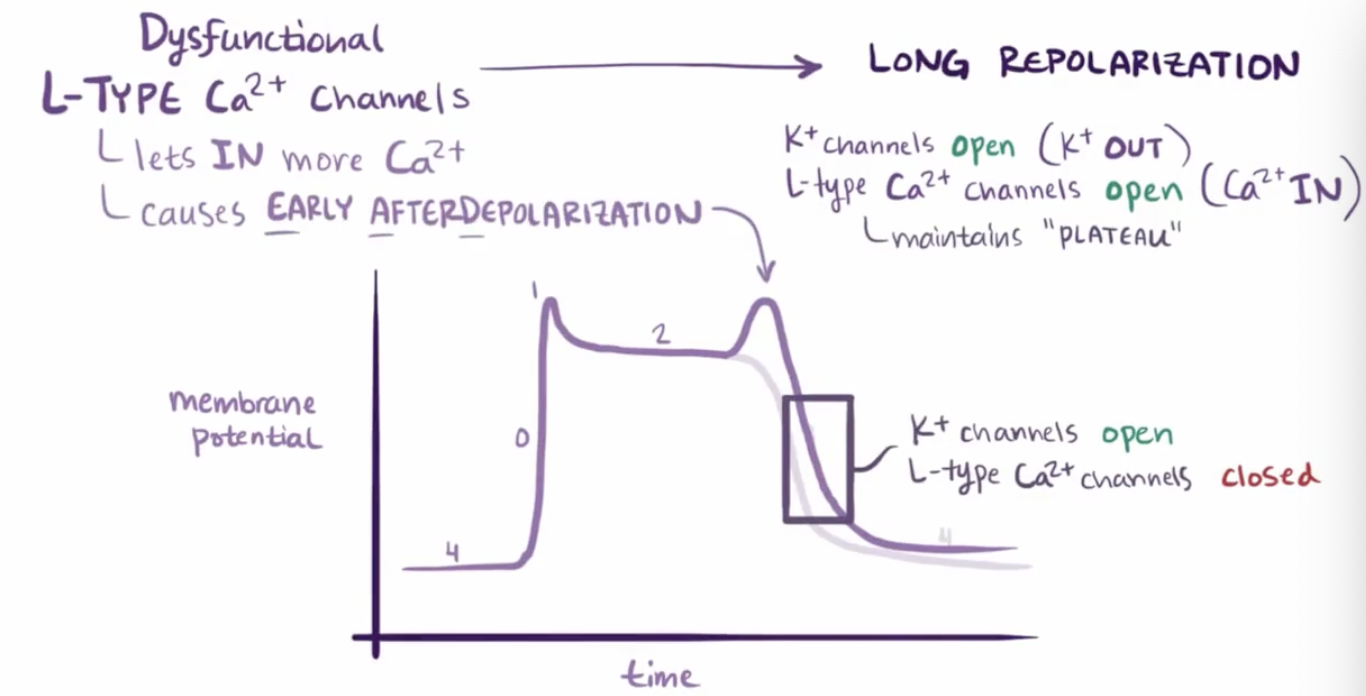 Dysfunctional
L-TYPE Ca²⁺ Channels
lets IN more Ca²⁺
causes EARLY AFTERDEPOLARIZATION
LONG REPOLARIZATION
K⁺ channels open (K⁺ OUT)
L-type Ca²⁺ channels open (Ca²⁺ IN)
maintains "PLATEAU"
1
2
membrane
potential
0
K⁺ channels open
L-type Ca²⁺ channels closed
4
4
time